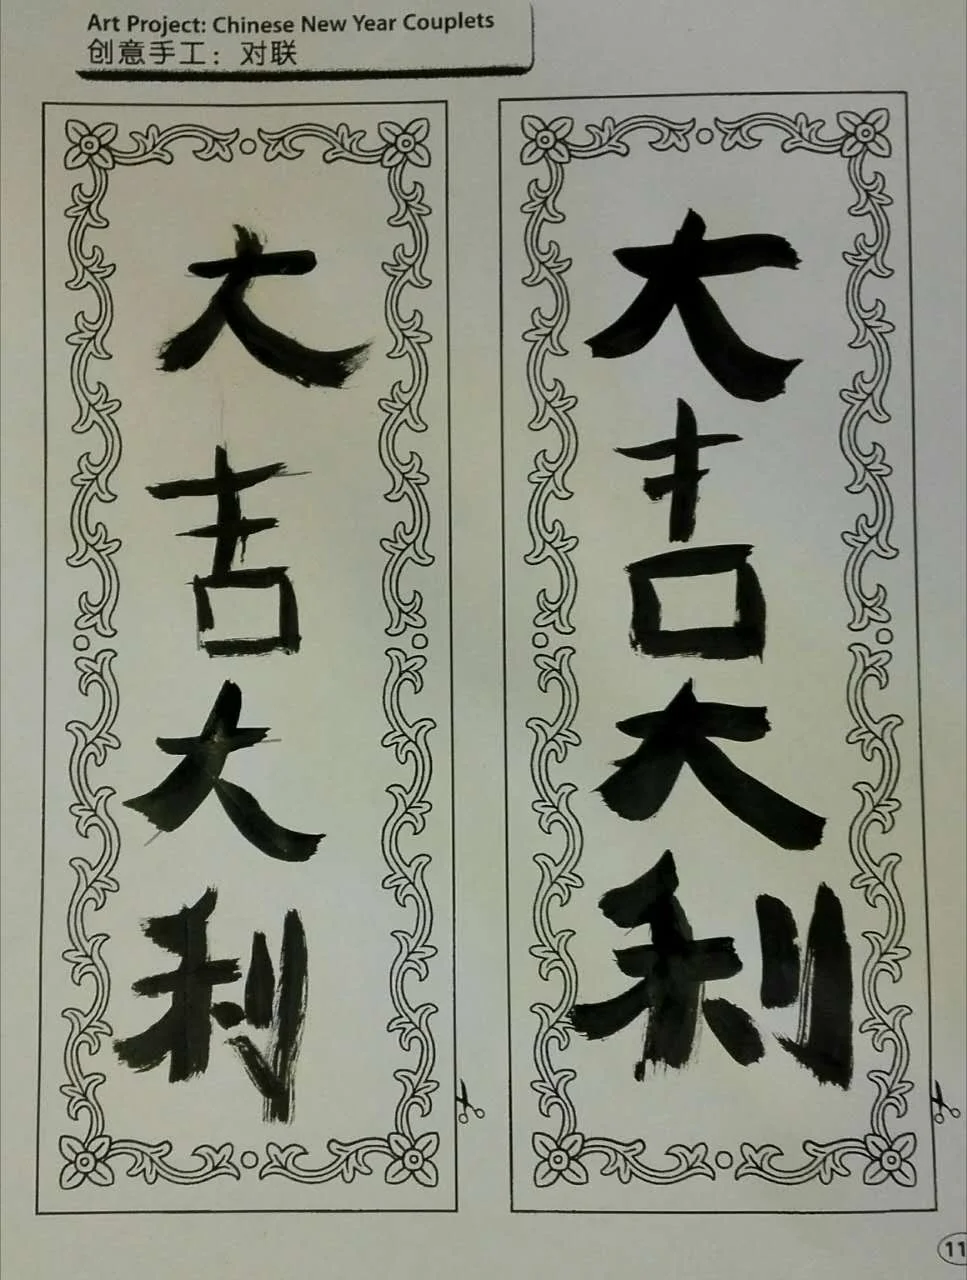 Art Project: Chinese New Year Couplets
创意手工：对联
大吉大利
大吉大利
11